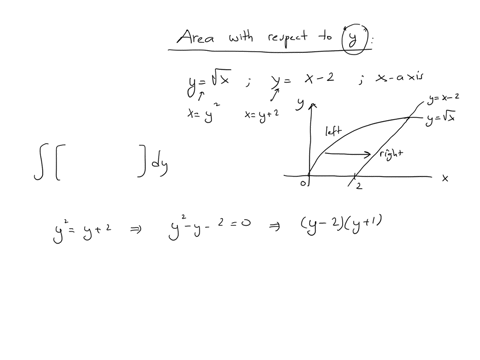 Area with respect to y :
y = √x ; y = x - 2 ; x-axis
x = y² x = y + 2
y
y = x - 2
y = √x
left
right
0 2 x
∫ [ ] dy
y² = y + 2 ⇒ y² - y - 2 = 0 ⇒ (y - 2)(y + 1)